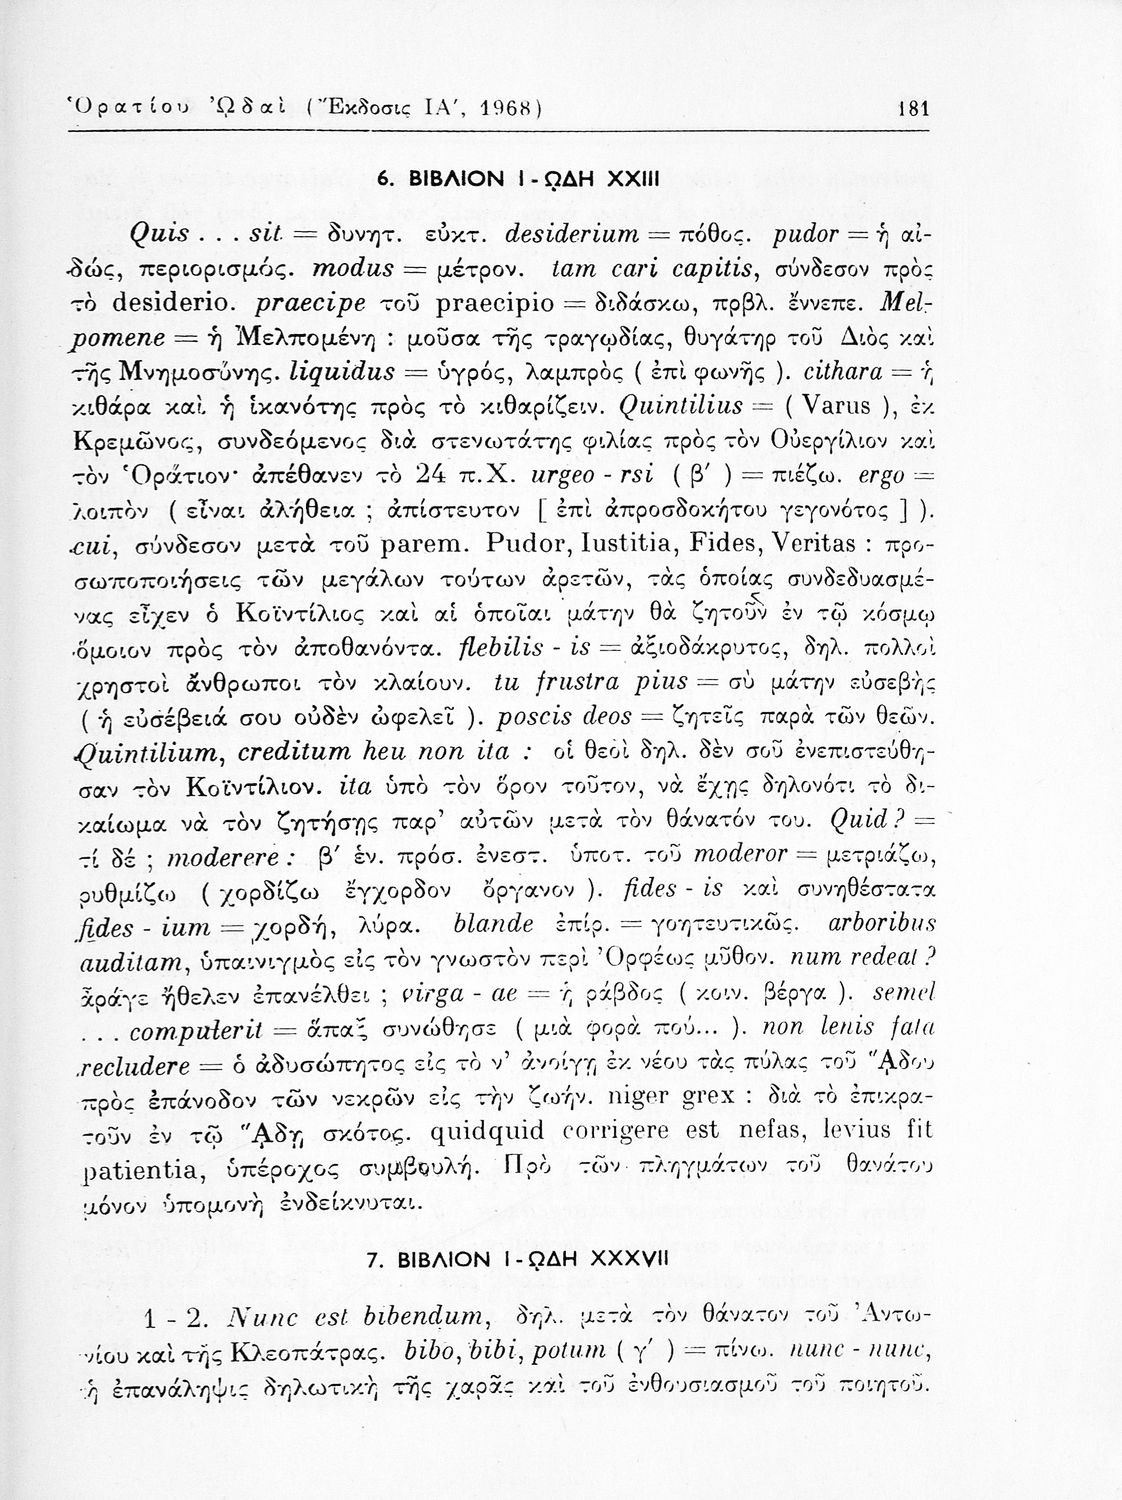 Ὁρατίου Ὠδαὶ (Ἔκδοσις ΙΑ΄, 1968) 181
6. ΒΙΒΛΙΟΝ Ι - ΩΔΗ XXIII
Quis . . . sit = δυνητ. εὐκτ. desiderium = πόθος. pudor = ἡ αἰ-
δώς, περιορισμός. modus = μέτρον. tam cari capitis, σύνδεσον πρὸς
τὸ desiderio. praecipe τοῦ praecipio = διδάσκω, πρβλ. ἔννεπε. Mel-
pomene = ἡ Μελπομένη : μοῦσα τῆς τραγῳδίας, θυγάτηρ τοῦ Διὸς καὶ
τῆς Μνημοσύνης. liquidus = ὑγρός, λαμπρὸς ( ἐπὶ φωνῆς ). cithara = ἡ
κιθάρα καὶ ἡ ἱκανότης πρὸς τὸ κιθαρίζειν. Quintilius = ( Varus ), ἐκ
Κρεμῶνος, συνδεόμενος διὰ στενωτάτης φιλίας πρὸς τὸν Οὐεργίλιον καὶ
τὸν Ὁράτιον· ἀπέθανεν τὸ 24 π.Χ. urgeo - rsi ( β΄ ) = πιέζω. ergo =
λοιπὸν ( εἶναι ἀλήθεια ; ἀπίστευτον [ ἐπὶ ἀπροσδοκήτου γεγονότος ] ).
cui, σύνδεσον μετὰ τοῦ parem. Pudor, Iustitia, Fides, Veritas : προ-
σωποποιήσεις τῶν μεγάλων τούτων ἀρετῶν, τὰς ὁποίας συνδεδυασμέ-
νας εἶχεν ὁ Κοϊντίλιος καὶ αἱ ὁποῖαι μάτην θὰ ζητοῦν ἐν τῷ κόσμῳ
ὅμοιον πρὸς τὸν ἀποθανόντα. flebilis - is = ἀξιοδάκρυτος, δηλ. πολλοὶ
χρηστοὶ ἄνθρωποι τὸν κλαίουν. tu frustra pius = σὺ μάτην εὐσεβὴς
( ἡ εὐσέβειά σου οὐδὲν ὠφελεῖ ). poscis deos = ζητεῖς παρὰ τῶν θεῶν.
Quintilium, creditum heu non ita : οἱ θεοὶ δηλ. δὲν σοῦ ἐνεπιστεύθη-
σαν τὸν Κοϊντίλιον. ita ὑπὸ τὸν ὅρον τοῦτον, νὰ ἔχῃς δηλονότι τὸ δι-
καίωμα νὰ τὸν ζητήσῃς παρ’ αὐτῶν μετὰ τὸν θάνατόν του. Quid ? =
τί δέ ; moderere : β΄ ἑν. πρόσ. ἐνεστ. ὑποτ. τοῦ moderor = μετριάζω,
ρυθμίζω ( χορδίζω ἔγχορδον ὄργανον ). fides - is καὶ συνηθέστατα
fides - ium = χορδή, λύρα. blande ἐπίρ. = γοητευτικῶς. arboribus
auditam, ὑπαινιγμὸς εἰς τὸν γνωστὸν περὶ Ὀρφέως μῦθον. num redeat ?
ἆράγε ἤθελεν ἐπανέλθει ; virga - ae = ἡ ράβδος ( κοιν. βέργα ). semel
. . . compulerit = ἅπαξ συνώθησε ( μιὰ φορὰ πού... ). non lenis fata
recludere = ὁ ἀδυσώπητος εἰς τὸ ν’ ἀνοίγῃ ἐκ νέου τὰς πύλας τοῦ ᾍδου
πρὸς ἐπάνοδον τῶν νεκρῶν εἰς τὴν ζωήν. niger grex : διὰ τὸ ἐπικρα-
τοῦν ἐν τῷ ᾍδῃ σκότος. quidquid corrigere est nefas, levius fit
patientia, ὑπέροχος συμβουλή. Πρὸ τῶν πληγμάτων τοῦ θανάτου
μόνον ὑπομονὴ ἐνδείκνυται.
7. ΒΙΒΛΙΟΝ Ι - ΩΔΗ XXXVII
1 - 2. Nunc est bibendum, δηλ. μετὰ τὸν θάνατον τοῦ Ἀντω-
νίου καὶ τῆς Κλεοπάτρας. bibo, bibi, potum ( γ΄ ) = πίνω. nunc - nunc,
ἡ ἐπανάληψις δηλωτικὴ τῆς χαρᾶς καὶ τοῦ ἐνθουσιασμοῦ τοῦ ποιητοῦ.